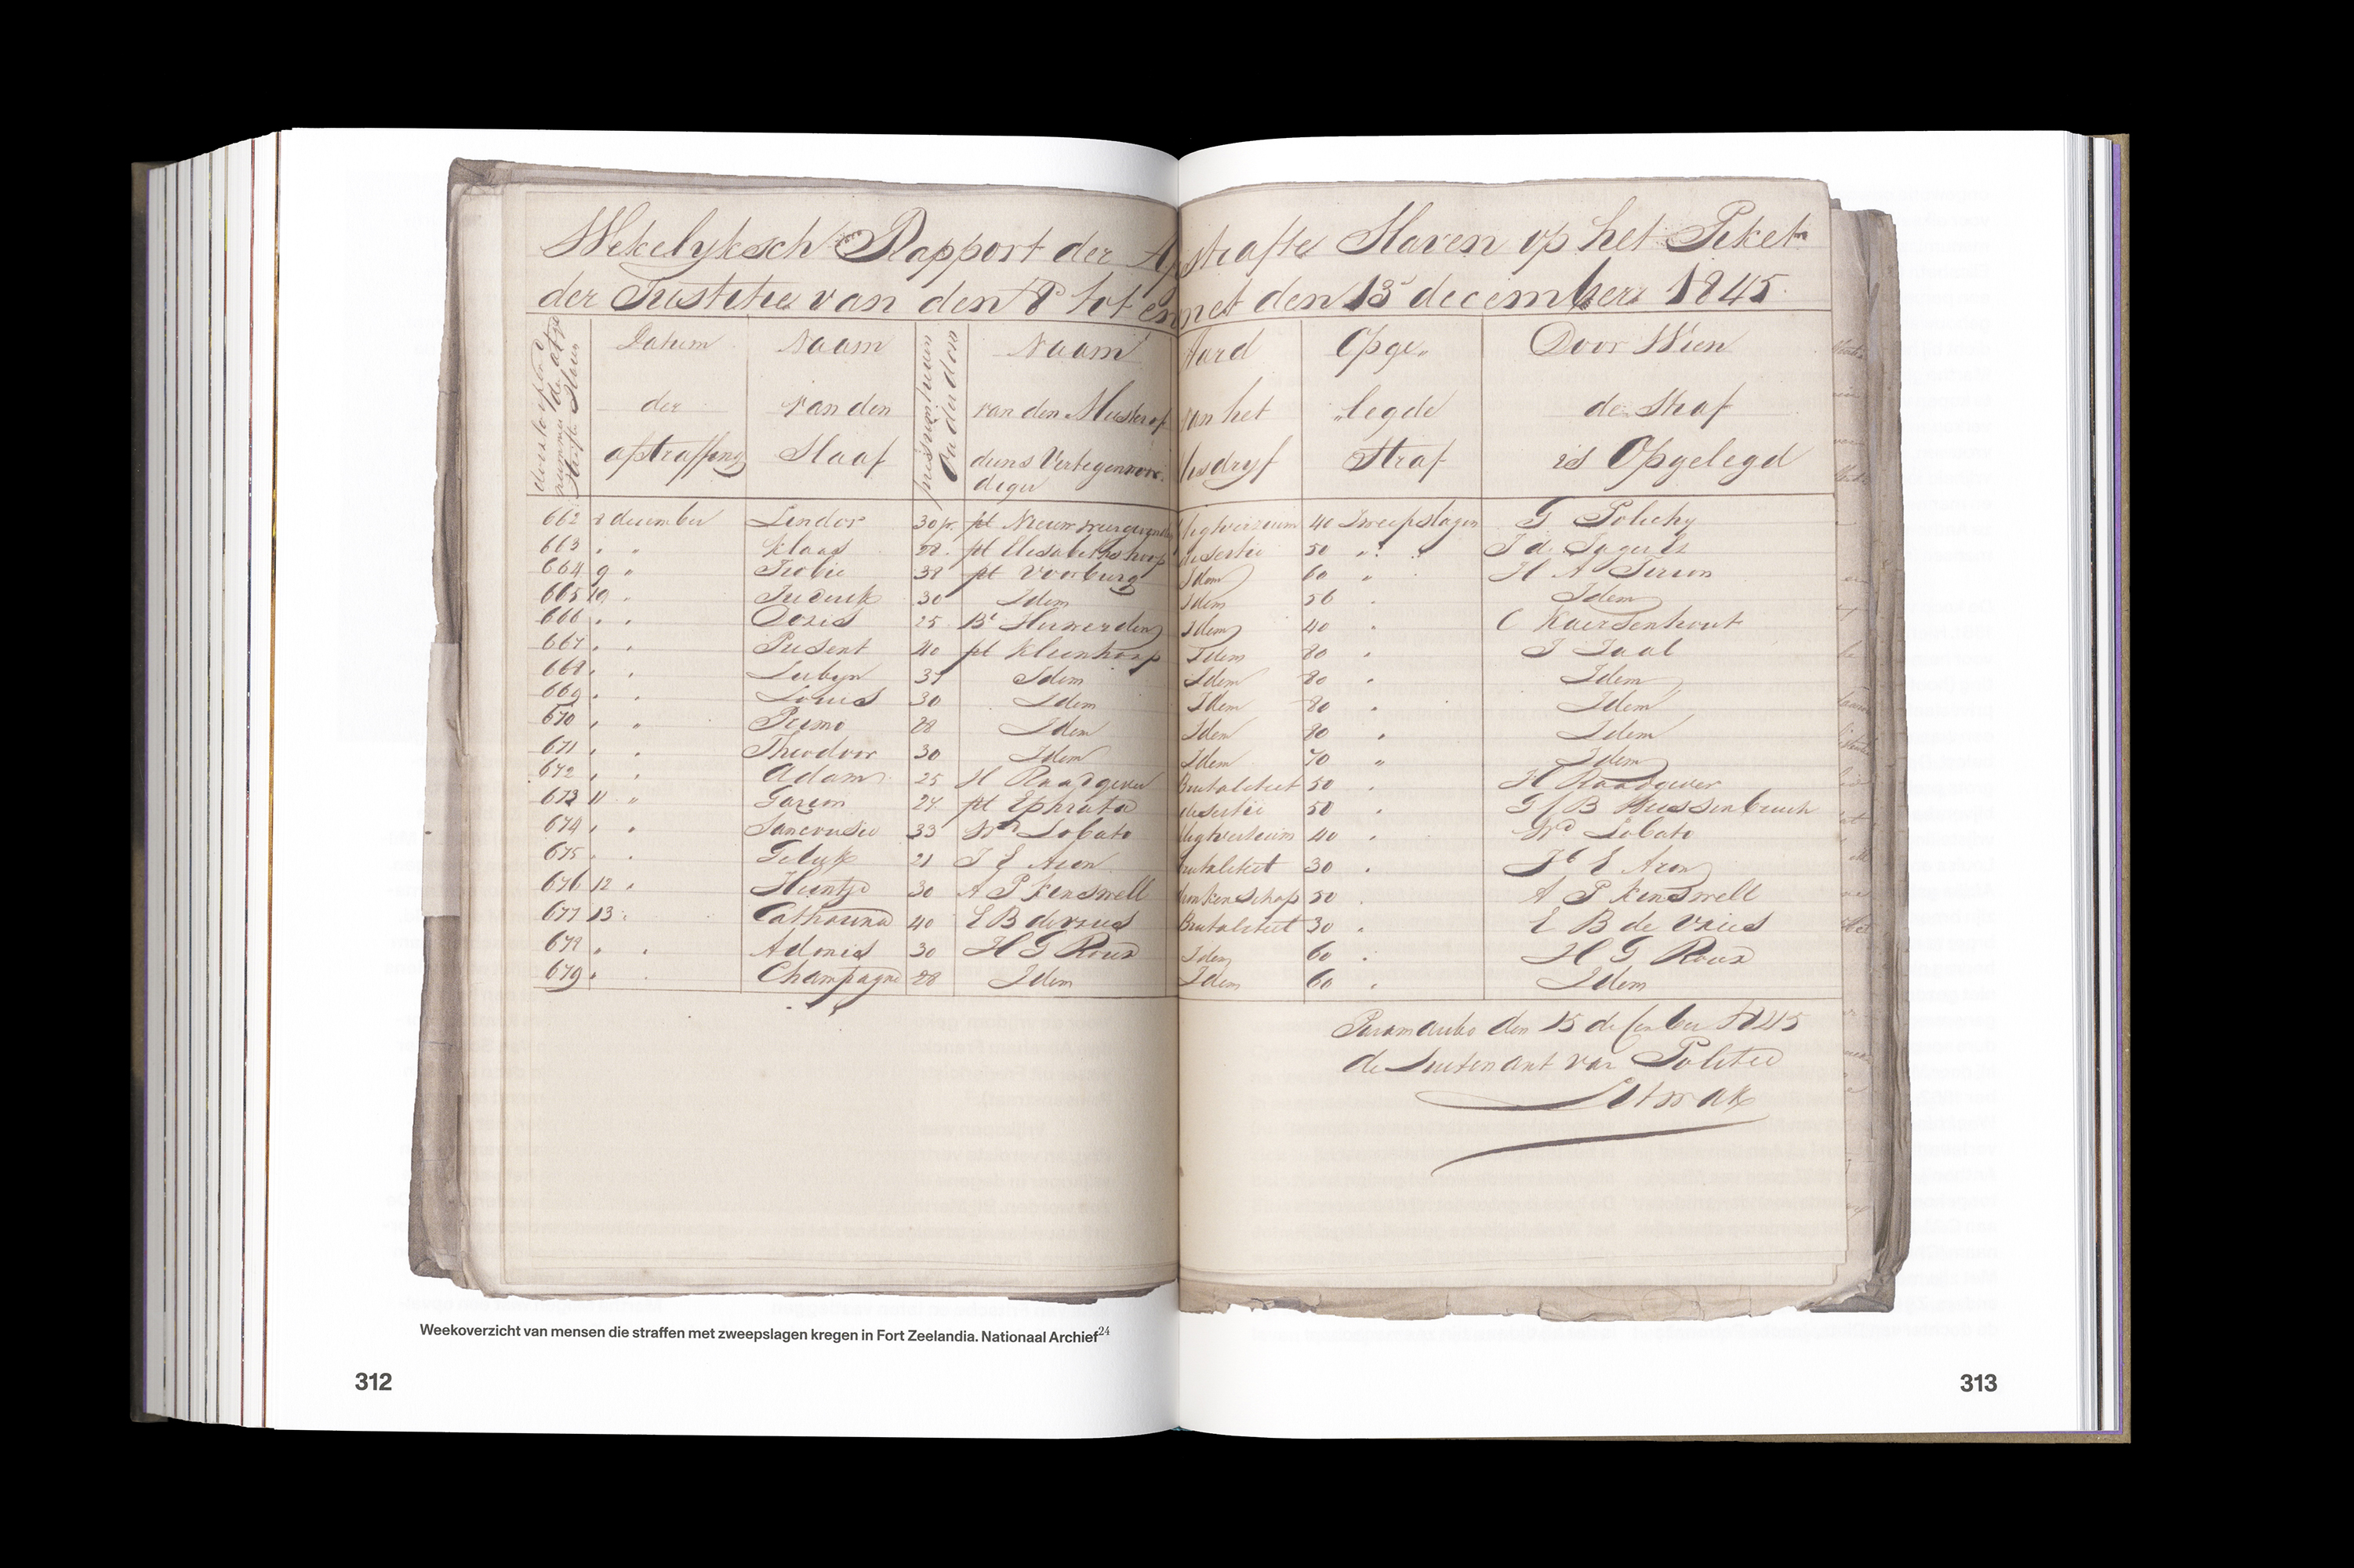 Wekelyksch Rapport der Afstrafte Slaven op het Piket
der Justitie van den 8 tot en met den 13 december 1845
Datum Naam Naam Aard Opge„ Door Wien
der van den van den Meester of van het „legde de Straf
afstraffing Slaaf diens Vertegenwoor- Misdryf Straf is Opgelegd
diger
662 8 december Lindor 30 pr. pl Nieuw 40 Zweepslagen G
663 " " Klaas 28 pl Elisabethshoop desertie 50 "
664 9 " 38 pl Voorburg Idem 60 " H A
665 10 " 30 Idem Idem 50 " Idem
666 " " 25 Idem 40 " C Kaersenhout
667 " " Present 40 pl Kleinhoop Idem 80 "
668 " " Lubyn 35 Idem Idem 80 " Idem
669 " " Louis 30 Idem Idem 80 " Idem
670 " " Primo 28 Idem Idem 80 " Idem
671 " " Theodoor 30 Idem Idem 70 " Idem
672 " " Adam 25 H Raadgever Brutaliteit 50 " H Raadgever
673 11 " 27 pl Ephrata desertie 50 " G B
674 " " 33 Lobato 40 " Lobato
675 " " Geluk 21 J E Aron Brutaliteit 30 " E Aron
676 12 " Heintje 30 A P Kenswell dronkenschap 50 " A P Kenswell
677 13 " Catharina 40 E B de vries Brutaliteit 30 " E B de Vries
678 " " Adonis 30 H G Roux Idem 60 " H G Roux
679 " " Champagne 28 Idem Idem 60 " Idem
Paramaribo den 15 december 1845
de Luitenant van Politie
Weekoverzicht van mensen die straffen met zweepslagen kregen in Fort Zeelandia. Nationaal Archief24
312
313